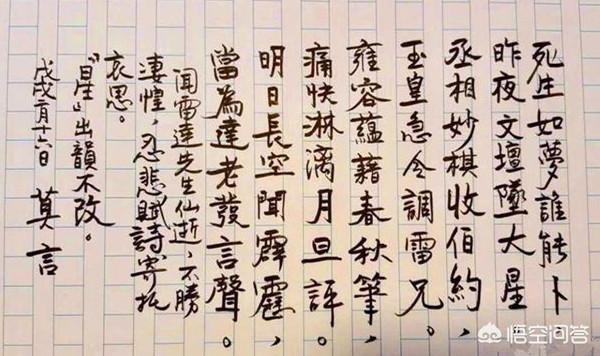 死生如夢誰能卜，
昨夜文壇墜大星。
丞相妙棋收伯約，
玉皇急令調雷兄。
雍容蘊藉春秋筆，
痛快淋漓月旦評。
明日長空聞霹靂，
當為達老發言聲。
聞雷達先生仙逝，不勝
淒惶，忍悲賦詩寄托
哀思。
『星』出韻不改。
戊戌二月十六日 莫言
悟空问答